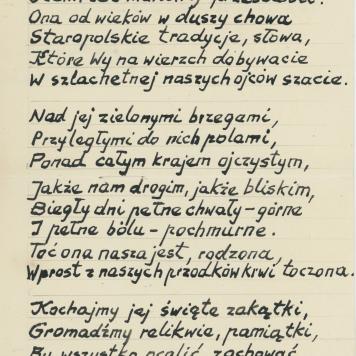 Ona od wieków w duszy chowa
Staropolskie tradycje, słowa,
Które Wy na wierzch dobywacie
W szlachetnej naszych ojców szacie.
Nad jej zielonymi brzegami,
Przyległymi do nich polami,
Ponad całym krajem ojczystym,
Jakże nam drogim, jakże bliskim,
Biegły dni pełne chwały – górne
I pełne bólu – pochmurne.
Toć ona nasza jest, rodzona,
Wprost z naszych przodków krwi toczona.
Kochajmy jej święte zakątki,
Gromadźmy relikwie, pamiątki,
By wszystko ocalić, zachować